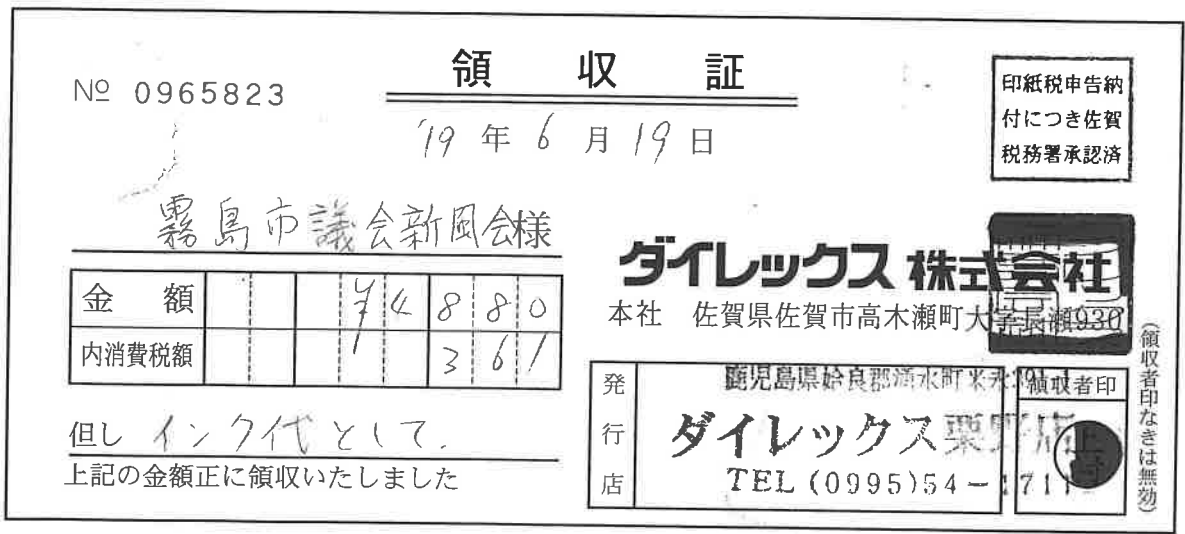 領収証
№ 0965823
'19年6月19日
印紙税申告納
付につき佐賀
税務署承認済
霧島市議会新風会様
金額 ¥4880
内消費税額 361
但し インク代として.
上記の金額正に領収いたしました
ダイレックス株式会社
本社 佐賀県佐賀市高木瀬町大字長瀬930
発行店
鹿児島県姶良郡湧水町米永
ダイレックス栗野店
TEL(0995)54-1711
領収者印
(領収者印なきは無効)